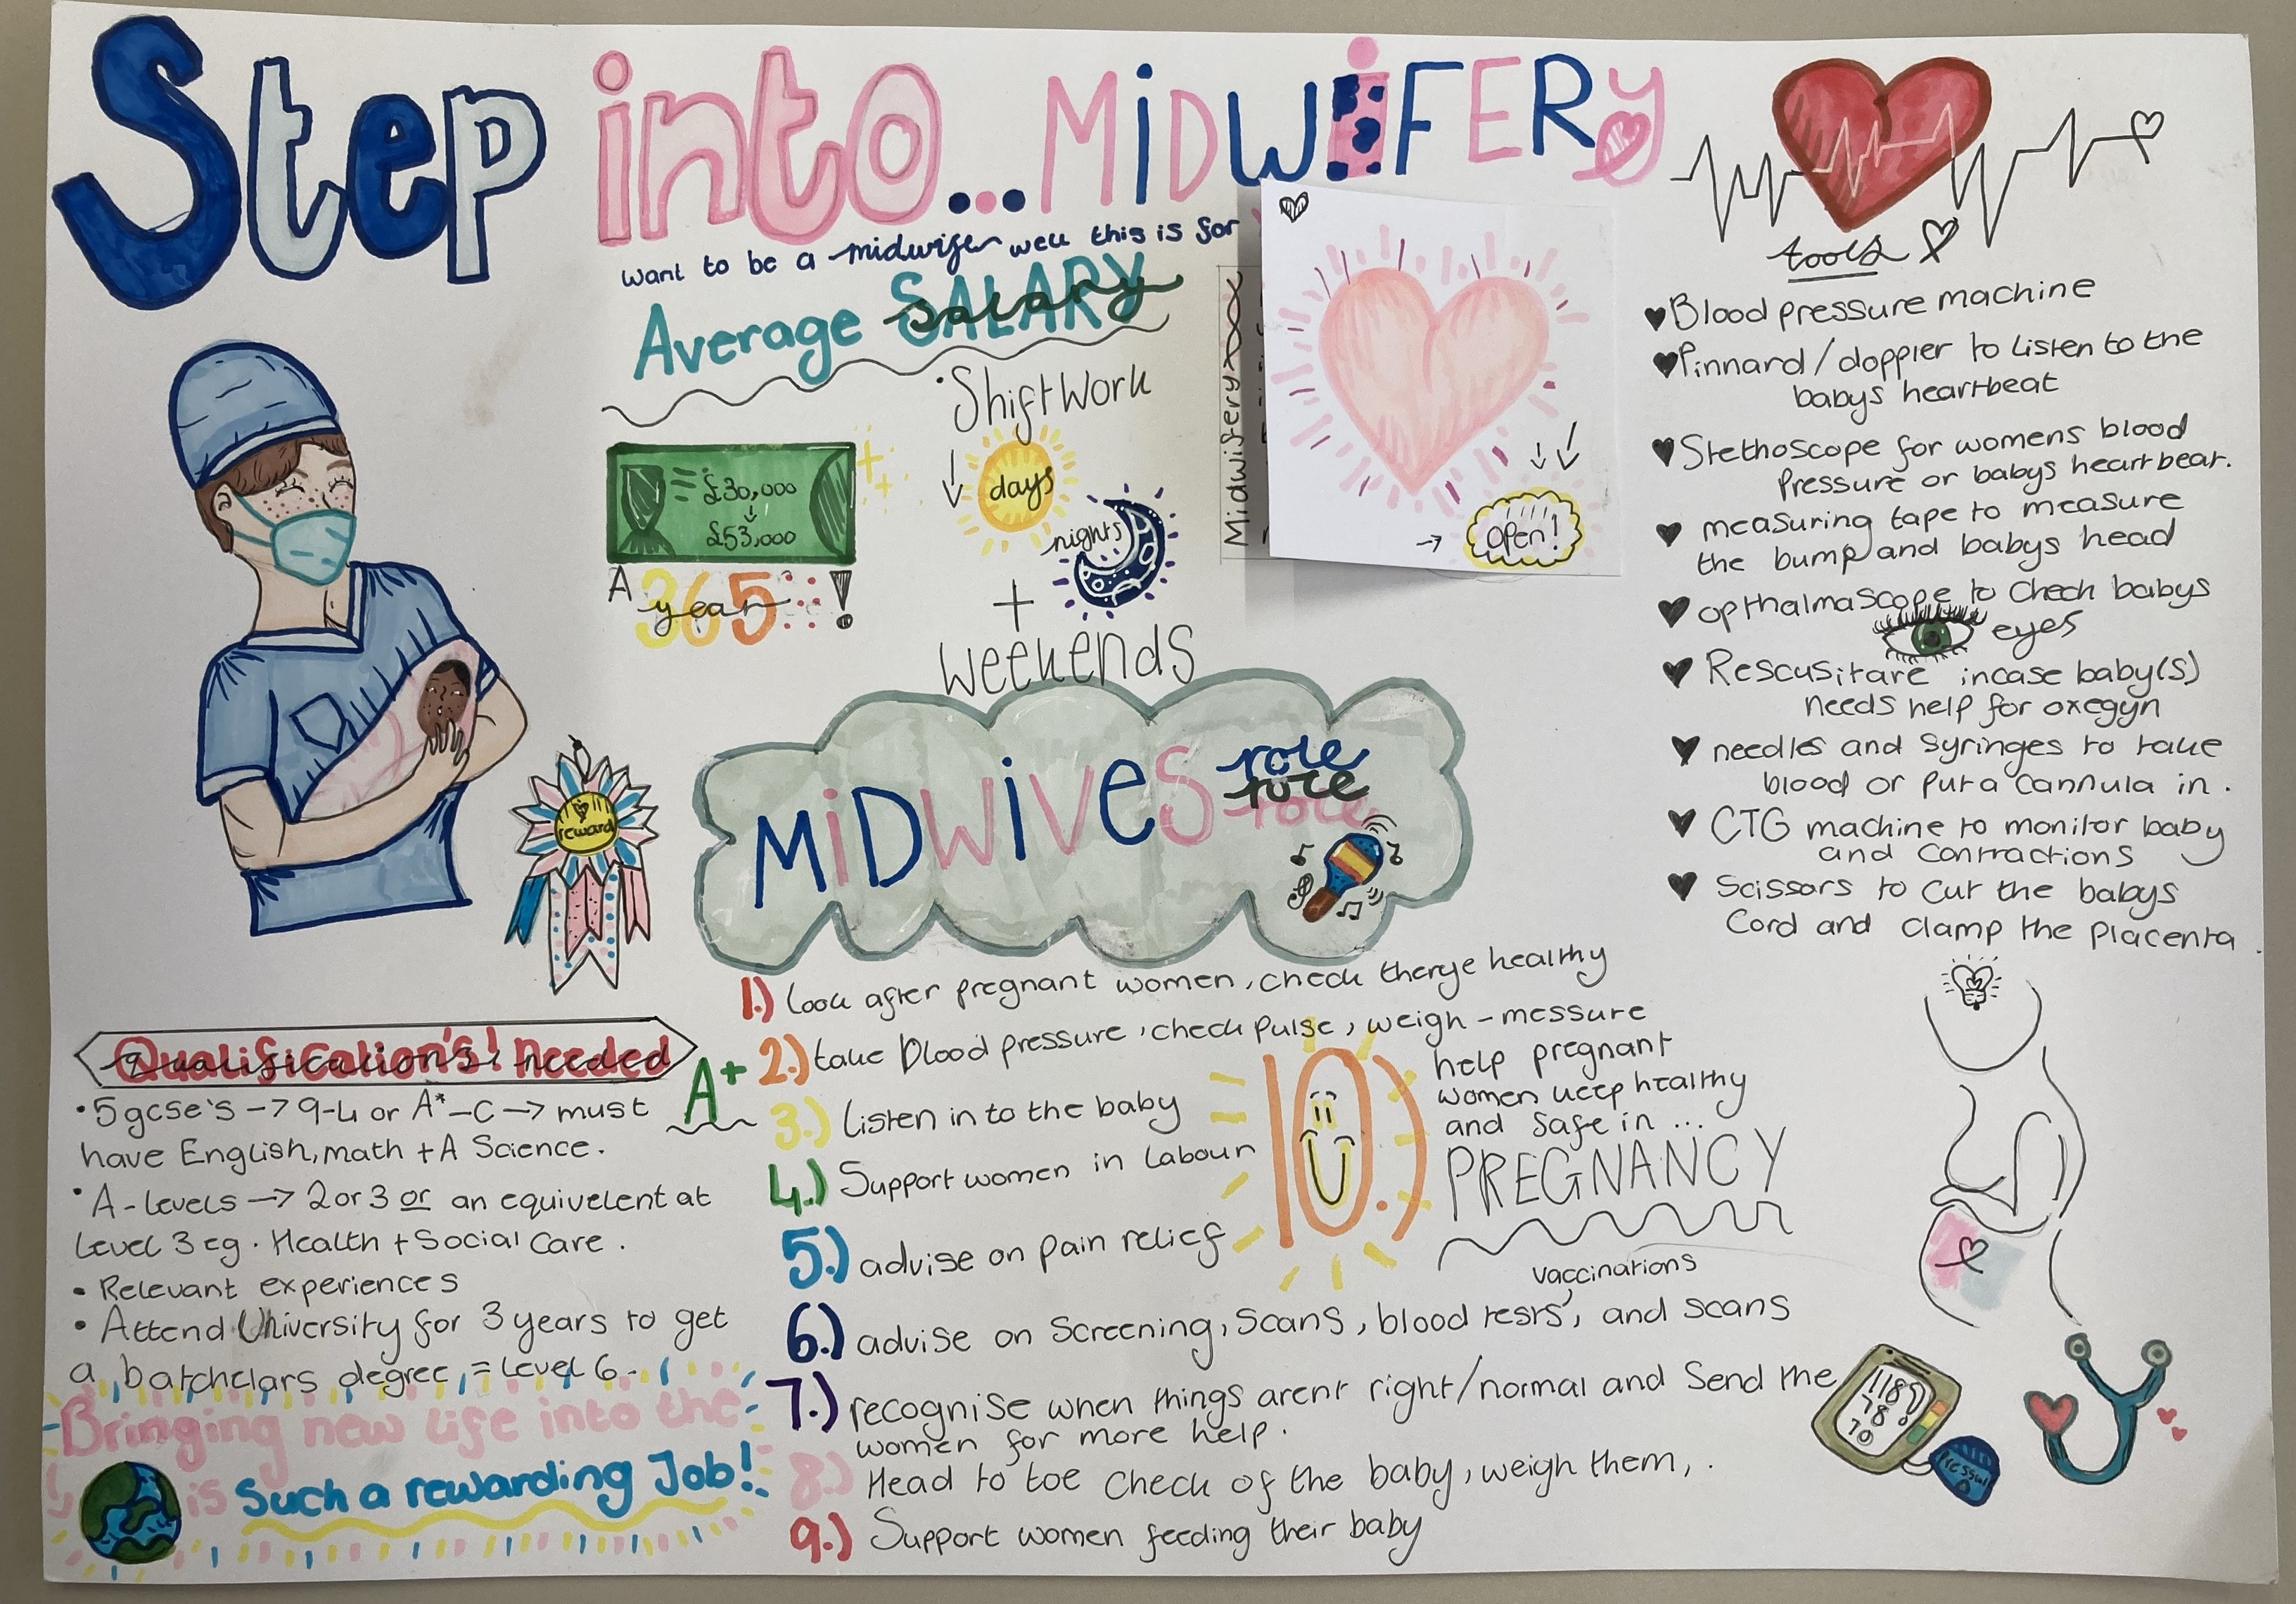 Step into...MiDWiFERy
want to be a midwife well this is for
Average SALARY
salary
£30,000
£53,000
A 365 !
year
Shift Work
days
nights
+
weekends
Midwifery
open!
tools
Blood pressure machine
Pinnard/doppler to listen to the
babys heartbeat
Stethoscope for womens blood
Pressure or babys heartbeat.
measuring tape to measure
the bump and babys head
opthalmascope to check babys
eyes
Rescusitare incase baby(s)
needs help for oxegyn
needles and syringes to take
blood or put a cannula in.
CTG machine to monitor baby
and contractions
Scissors to cut the babys
Cord and clamp the placenta.
reward
MiDWiVeS role
role
role
1.) look after pregnant women, check therye healthy
2.) take blood pressure, check pulse, weigh-messure
3.) listen in to the baby
4.) Support women in labour
5.) advise on pain relief
vaccinations
6.) advise on screening, scans, blood tests, and scans
7.) recognise when things arent right/normal and send the
women for more help.
8.) Head to toe check of the baby, weigh them, .
9.) Support women feeding their baby
10.) help pregnant
women keep healthy
and safe in ...
PREGNANCY
Qualification's! needed
qualification's! needed
A+
•5 gcse's → 9-4 or A*-C → must
have English, math + A Science.
•A-levels → 2 or 3 or an equivelent at
level 3 eg. Health + Social Care.
• Relevant experiences
• Attend University for 3 years to get
a batchelars degree, = level 6.
Bringing new life into the
is Such a rewarding Job!
118
78
70
Pressure